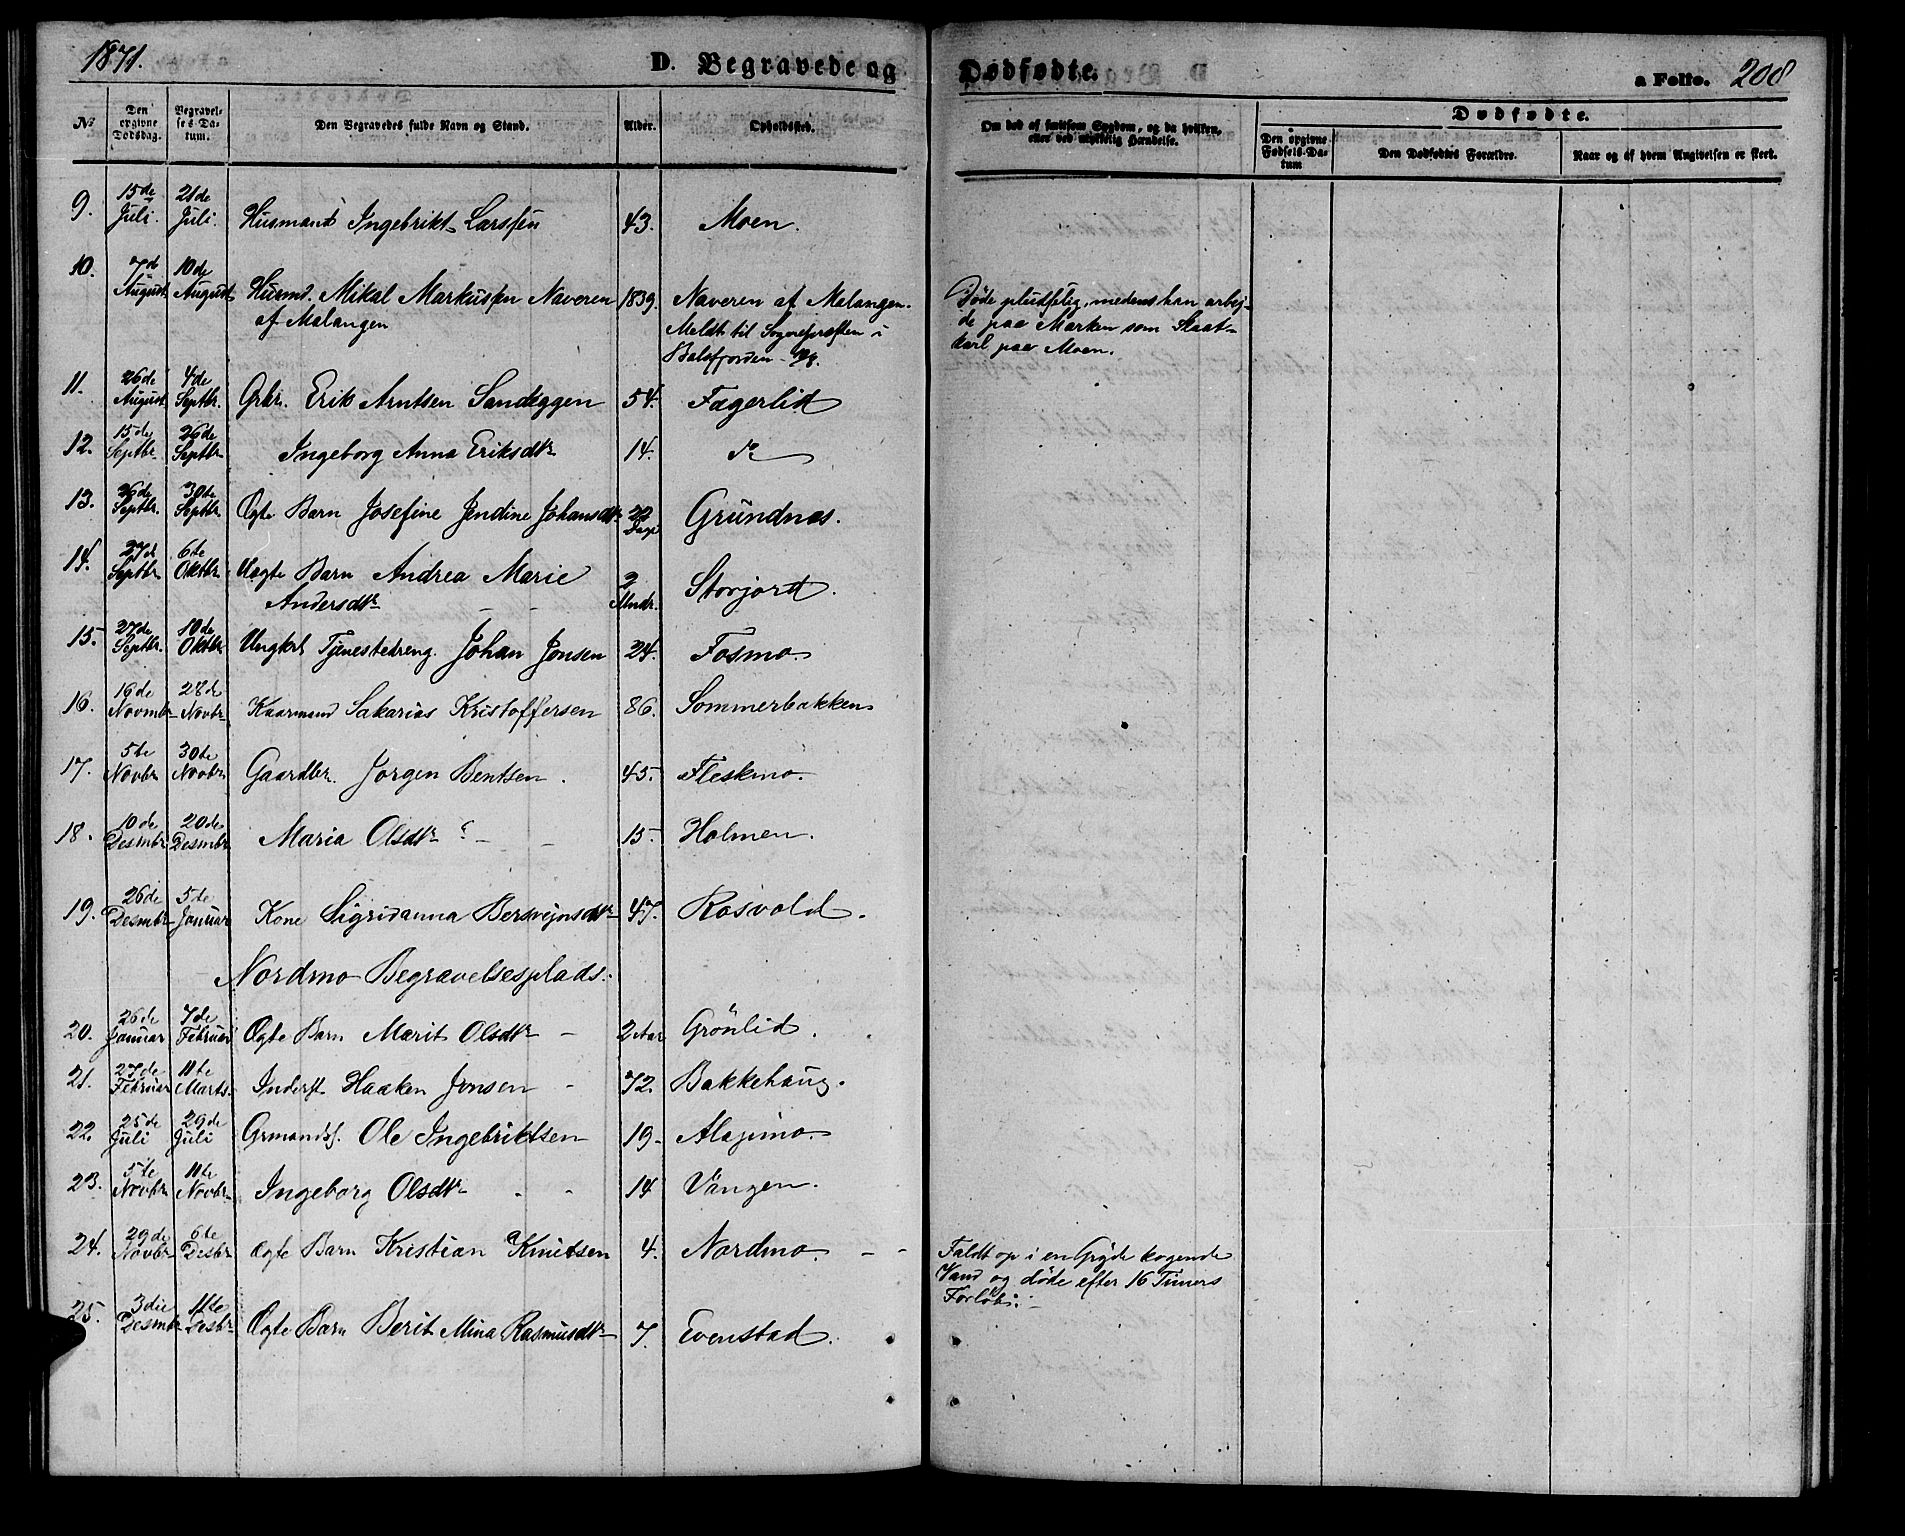 1871.
D. Begravede og Dødfødte.
a Folio. 208
No
Den opgivne Dødsdag.
Begravelses Datum.
Den Begravedes fulde Navn og Stand.
Alder.
Opholdssted.
Om død af smitsom Sygdom, og da hvilken, eller ved ulykkelig Hændelse.
Dødfødte.
Den opgivne Fødsels-Datum
Den Dødfødtes Forældre.
Naar og af hvem Angivelsen er skeet.
9. 15de Juli. 21de Juli. Husmand Ingebrikt Larssen 43. Moen.
10. 7de August 10de August Husmd. Mikal Markussen Naveren 1839. Naveren af Malangen.
af Malangen
Meldt til Sognepræsten i
Balsfjorden
Døde pludselig, medens han arbej-
de paa Marken som Slaat-
karl paa Moen.
11. 26de August 4de Septbr. Grbr. Erik Arntsen Sandeggen 54. Fagerlid
12. 15de Septbr. 26de Septbr. Ingeborg Anna Eriksdtr 14. do
13. 26de Septbr. 30te Septbr. Ægte Barn Josefine Jendine Johansdtr 22 Dage Grundnæs.
14. 27de Septbr. 6te Oktbr. Uægte Barn Andrea Marie
Andersdtr 2 Mndr. Storjord.
15. 27de Septbr. 10de Oktbr Ungkrl Tjenestedreng. Johan Jonsen 24. Fosmo.
16. 16de Novmbr 28de Novbr Kaarmand Sakarias Kristoffersen 86. Sommerbakken
17. 5te Novbr 30te Novbr Gaardbr. Jørgen Bentsen. 45. Fleskmo.
18. 10de Desmbr 20de Desmbr. Maria Olsdtr 15 Holmen.
19. 26de Desmbr 5te Januar Kone Sigridanna Bersvejnsdtr 47. Rosvold.
Nordmo Begravelsesplads.
20. 26de Januar 7de Februar Ægte Barn Marit Olsdtr 2 Aar Grönlid.
21. 27de Februar 11te Marts. Inderst Haaken Jonsen 72. Bakkehaug.
22. 25de Juli 29de Juli Grmands. Ole Ingebriktsen 19 Alapmo.
23. 5te Novbr 11te Novbr Ingeborg Olsdtr 14 Vangen.
24. 29de Novbr 6te Desbr Ægte Barn Kristian Knutsen 4. Nordmo
Faldt op i en Gryde kogende
Vand og døde efter 16 Timers
Forløb.
25. 3die Desmbr 11te Desbr Ægte Barn Berit Mina Rasmusdtr 7. Evenstad.